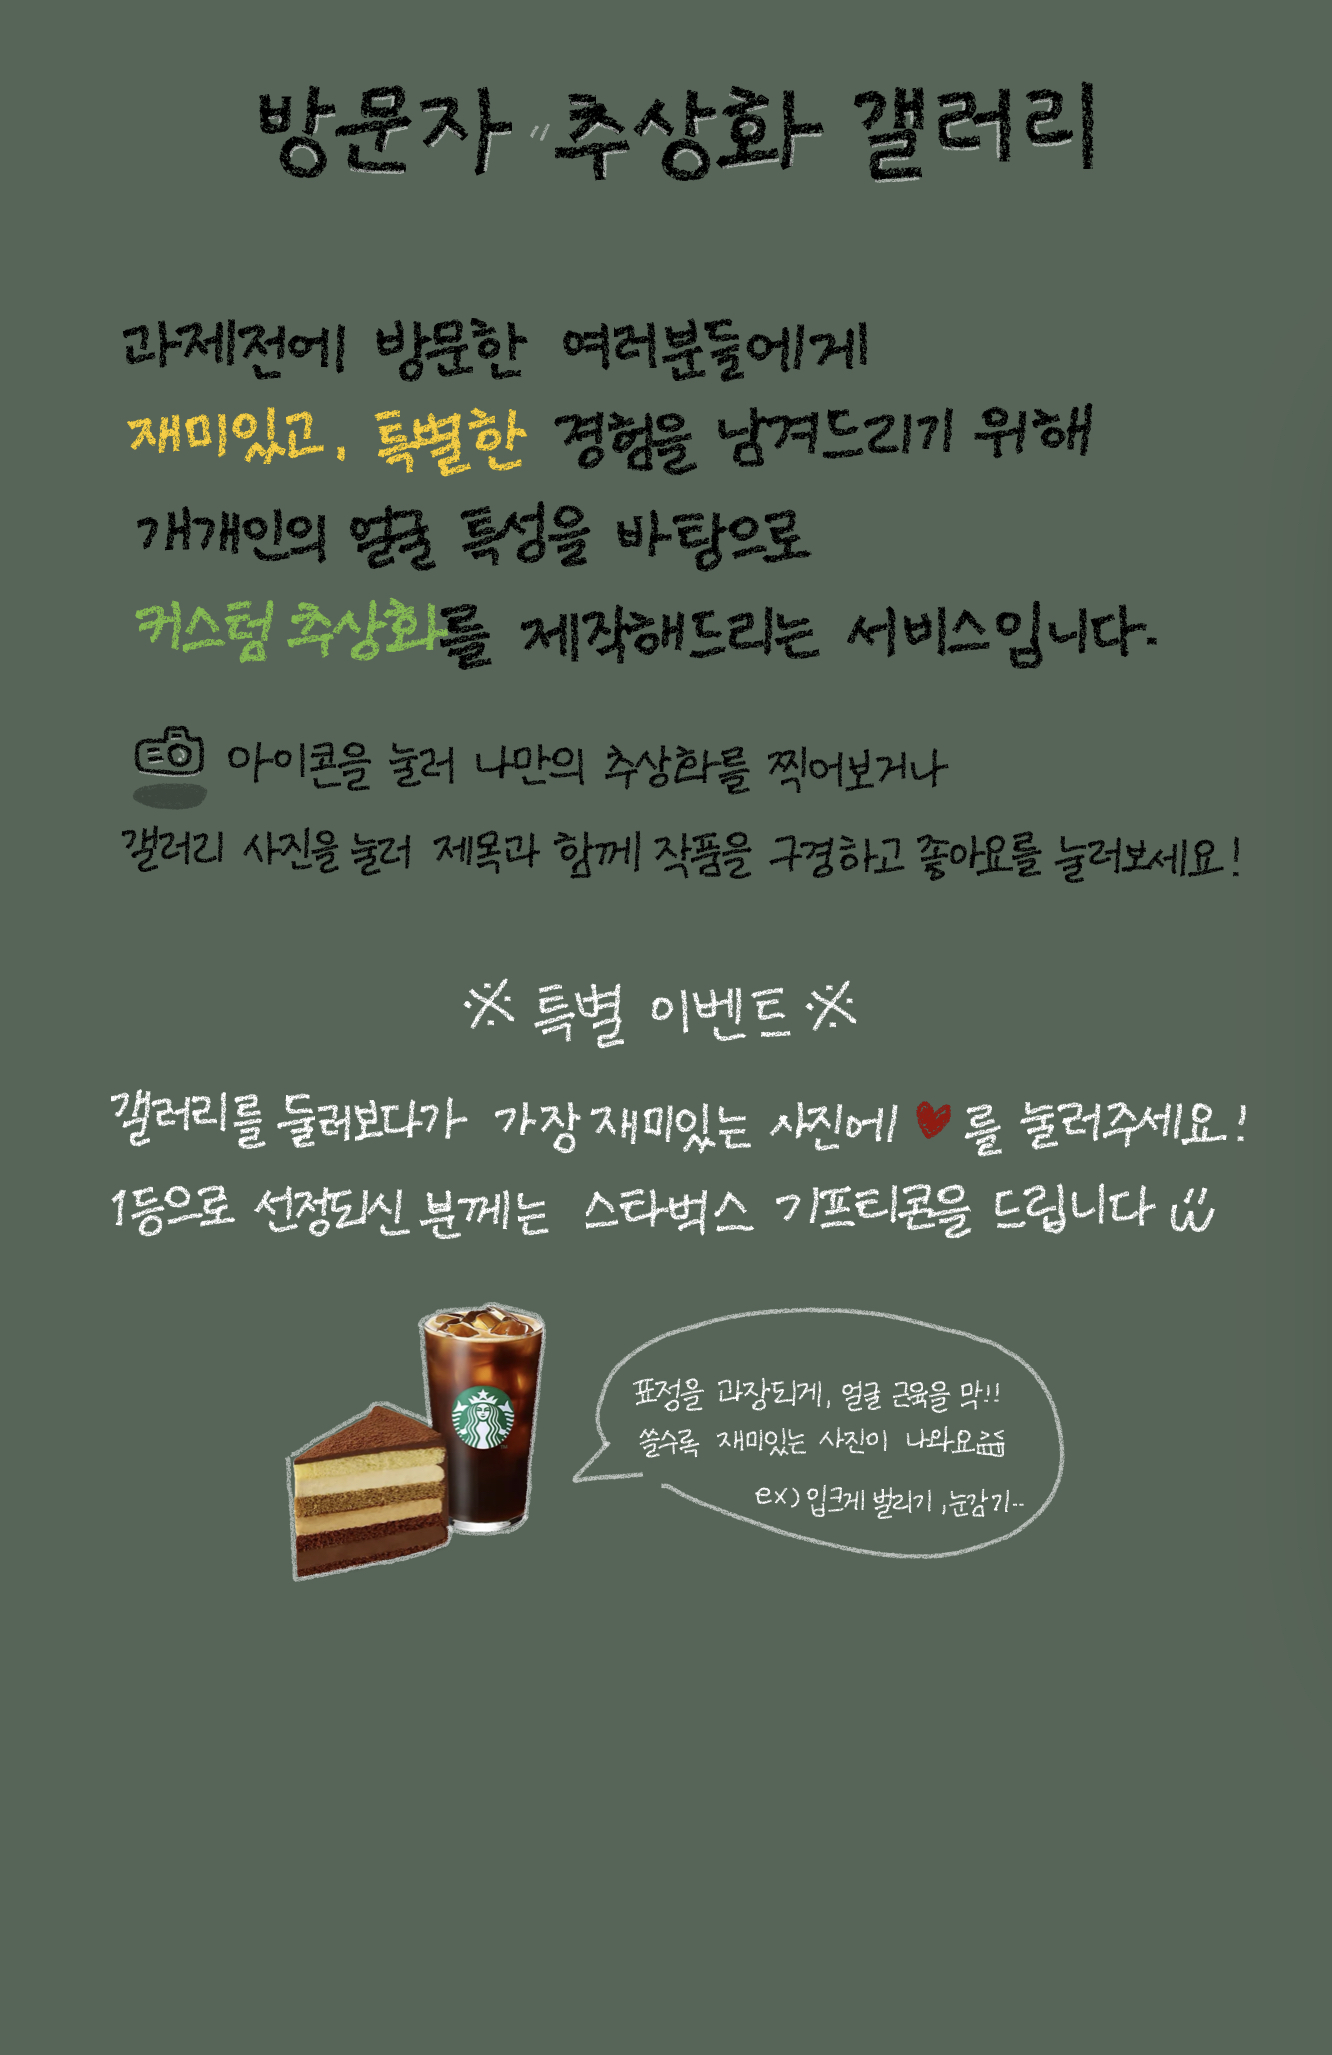 방문자 " 추상화 갤러리
과제전에 방문한 여러분들에게
재미있고, 특별한 경험을 남겨드리기 위해
개개인의 얼굴 특성을 바탕으로
커스텀 추상화를 제작해드리는 서비스입니다.
아이콘을 눌러 나만의 추상화를 찍어보거나
갤러리 사진을 눌러 제목과 함께 작품을 구경하고 좋아요를 눌러보세요!
※ 특별 이벤트 ※
갤러리를 둘러보다가 가장 재미있는 사진에 ♥를 눌러주세요!
1등으로 선정되신 분께는 스타벅스 기프티콘을 드립니다
표정을 과장되게, 얼굴 근육을 막!!
쓸수록 재미있는 사진이 나와요
ex) 입크게 벌리기, 눈감기..